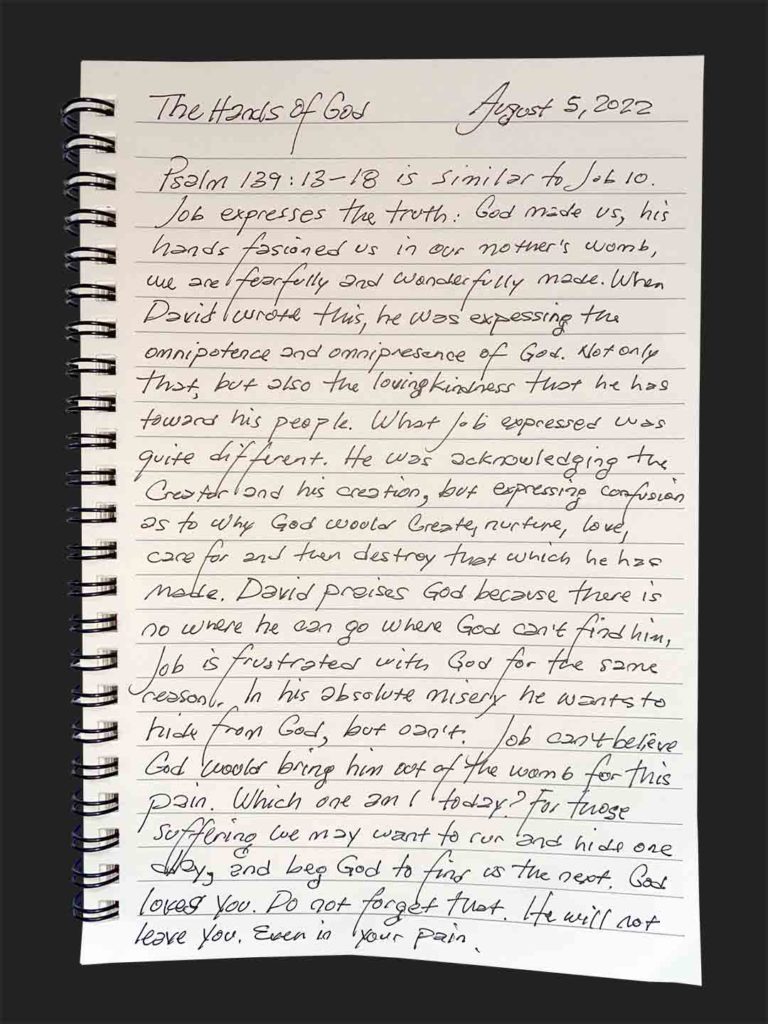 The Hands of God August 5, 2022
Psalm 139:13-18 is similar to Job 10.
Job expresses the truth: God made us, his
hands fasioned us in our mother's womb,
we are fearfully and wonderfully made. When
David wrote this, he was expessing the
omnipotence and omnipresence of God. Not only
that, but also the lovingkindness that he has
toward his people. What Job expressed was
quite different. He was acknowledging the
Creator and his creation, but expressing confusion
as to why God would Create, nurture, love,
care for and then destroy that which he has
made. David praises God because there is
no where he can go where God can't find him,
Job is frustrated with God for the same
reason. In his absolute misery he wants to
hide from God, but can't. Job can't believe
God would bring him out of the womb for this
pain. Which one am I today? For those
suffering we may want to run and hide one
day, and beg God to find us the next. God
loves you. Do not forget that. He will not
leave you. Even in your pain.